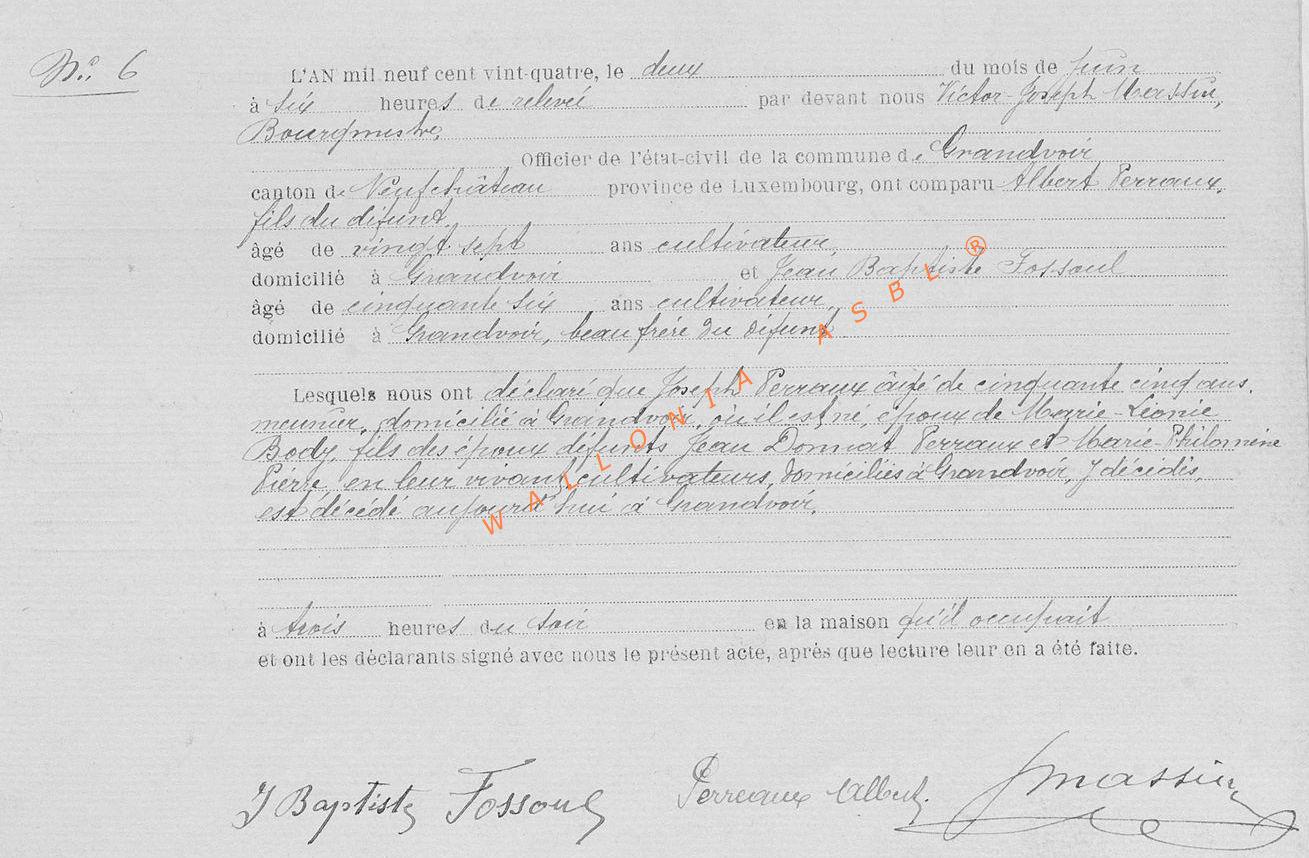 N° 6
L'AN mil neuf cent vint-quatre, le deux du mois de Juin
à six heures de relevée par devant nous Victor-Joseph Massin,
Bourgmestre,
Officier de l'état-civil de la commune de Grandvoir
canton de Neufchâteau province de Luxembourg, ont comparu Albert Perraux,
fils du défunt,
âgé de vingt sept ans cultivateur,
domicilié à Grandvoir et Jean Baptiste Fossoul
âgé de cinquante six ans cultivateur,
domicilié à Grandvoir, beau frère du défunt
Lesquels nous ont déclaré que Joseph Perraux âgé de cinquante cinq ans,
meunier, domicilié à Grandvoir, où il est né, époux de Marie-Léonie
Body, fils des époux défunts Jean Donnat Perraux et Marie-Philomène
Pierre, en leur vivant cultivateurs, domiciliés à Grandvoir, y décédés,
est décédé aujourd'hui à Grandvoir,
à trois heures du soir en la maison qu'il occupait
et ont les déclarants signé avec nous le présent acte, après que lecture leur en a été faite.
J Baptiste Fossoul Perreaux Albert. Jmassin
WALLONIA ASBL ®